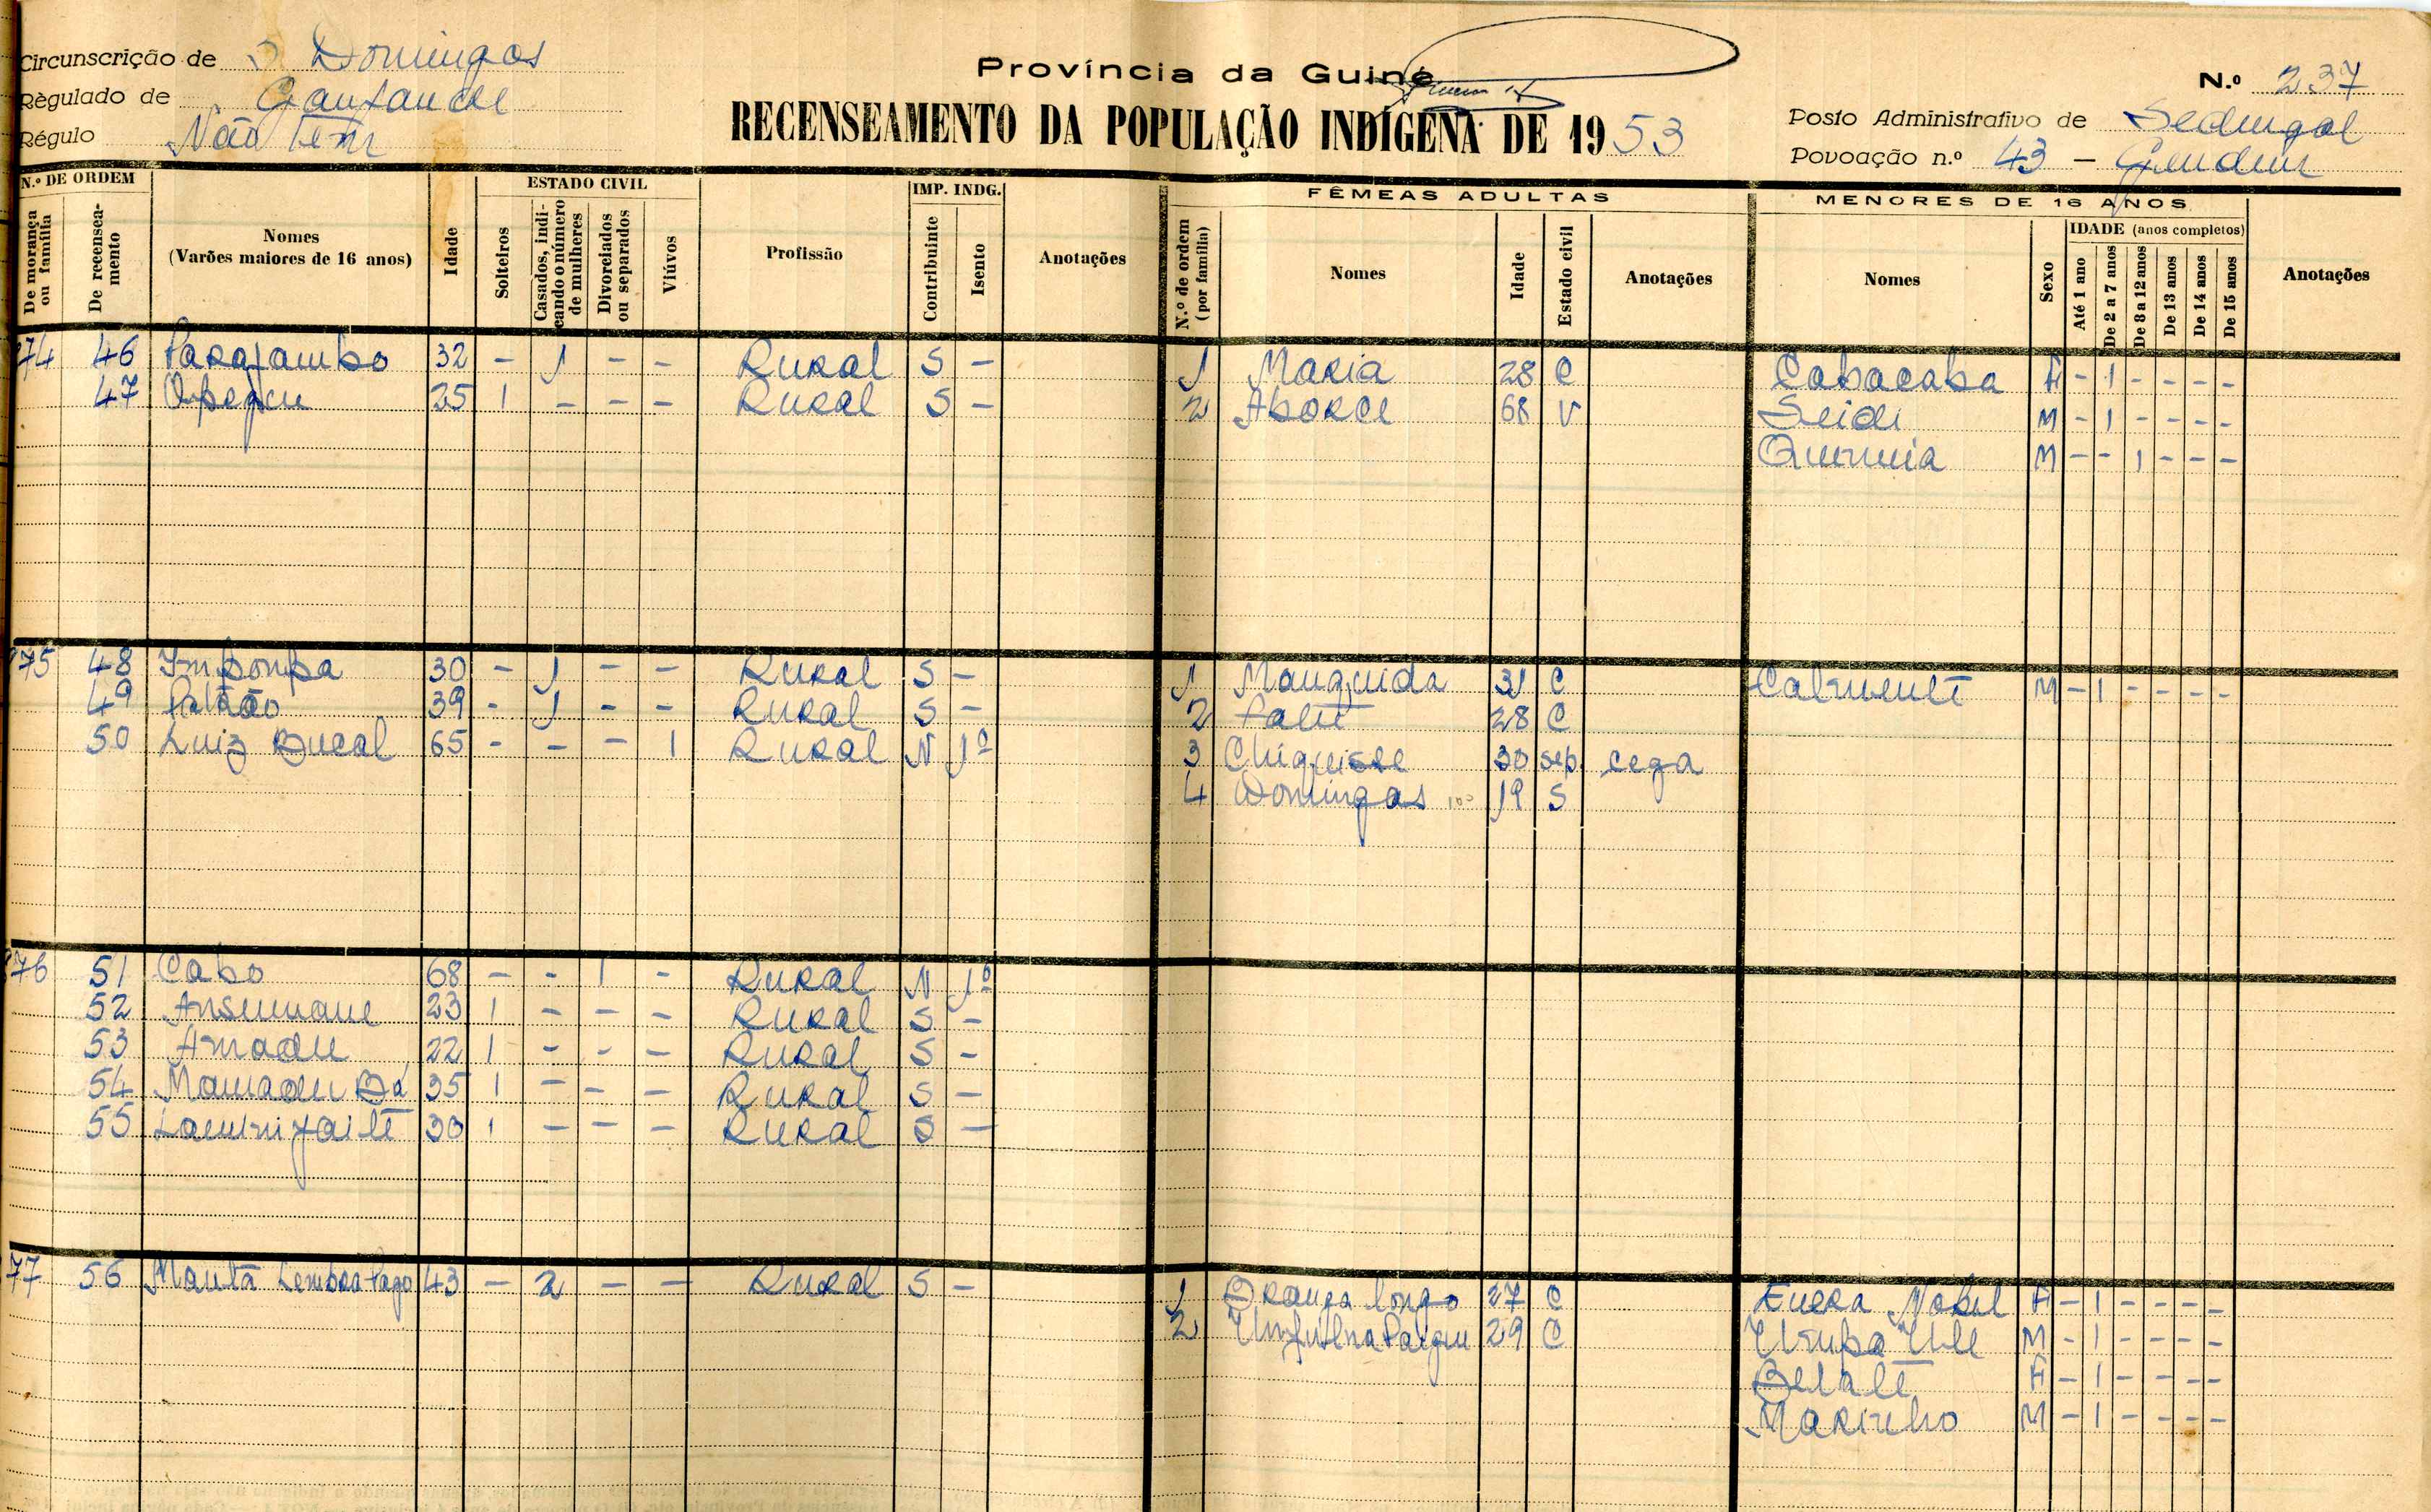 Circunscrição de S. Domingos
Règulado de
Régulo Não tem
Província da Guiné
RECENSEAMENTO DA POPULAÇÃO INDÍGENA DE 1953
N.º 237
Posto Administrativo de Sedengal
Povoação n.º 43 –
N.º DE ORDEM
De morança ou família
De recensea-mento
Nomes
(Varões maiores de 16 anos)
Idade
ESTADO CIVIL
Solteiros
Casados, indi-cando o número de mulheres
Divorciados ou separados
Viúvos
Profissão
IMP. INDG.
Contribuinte
Isento
Anotações
FÊMEAS ADULTAS
N.º de ordem (por família)
Nomes
Idade
Estado civil
Anotações
MENORES DE 16 ANOS
Nomes
Sexo
IDADE (anos completos)
Até 1 ano
De 2 a 7 anos
De 8 a 12 anos
De 13 anos
De 14 anos
De 15 anos
Anotações
74 46 32 – 1 – – Rural S – 1 Maria 28 C Cabacaba F – 1 – – – –
47 25 1 – – – Rural S – 2 68 V Seidi M – 1 – – – –
M – – 1 – – –
75 48 Impompa 30 – 1 – – Rural S – 1 Manguida 31 C M – 1 – – – –
49 Patrão 39 – 1 – – Rural S – 2 28 C
50 Luiz Bucal 65 – – – 1 Rural N 1º 3 30 sep. cega
4 Domingas 19 S
76 51 Cabo 68 – – 1 – Rural N 1º
52 Ansumane 23 1 – – – Rural S –
53 Amadu 22 1 – – – Rural S –
54 Mamadu Bá 35 1 – – – Rural S –
55 30 1 – – – Rural S –
77 56 43 – 2 – – Rural S – 1 27 C F – 1 – – – –
2 29 C M – 1 – – – –
F – 1 – – – –
Marinho M – 1 – – – –